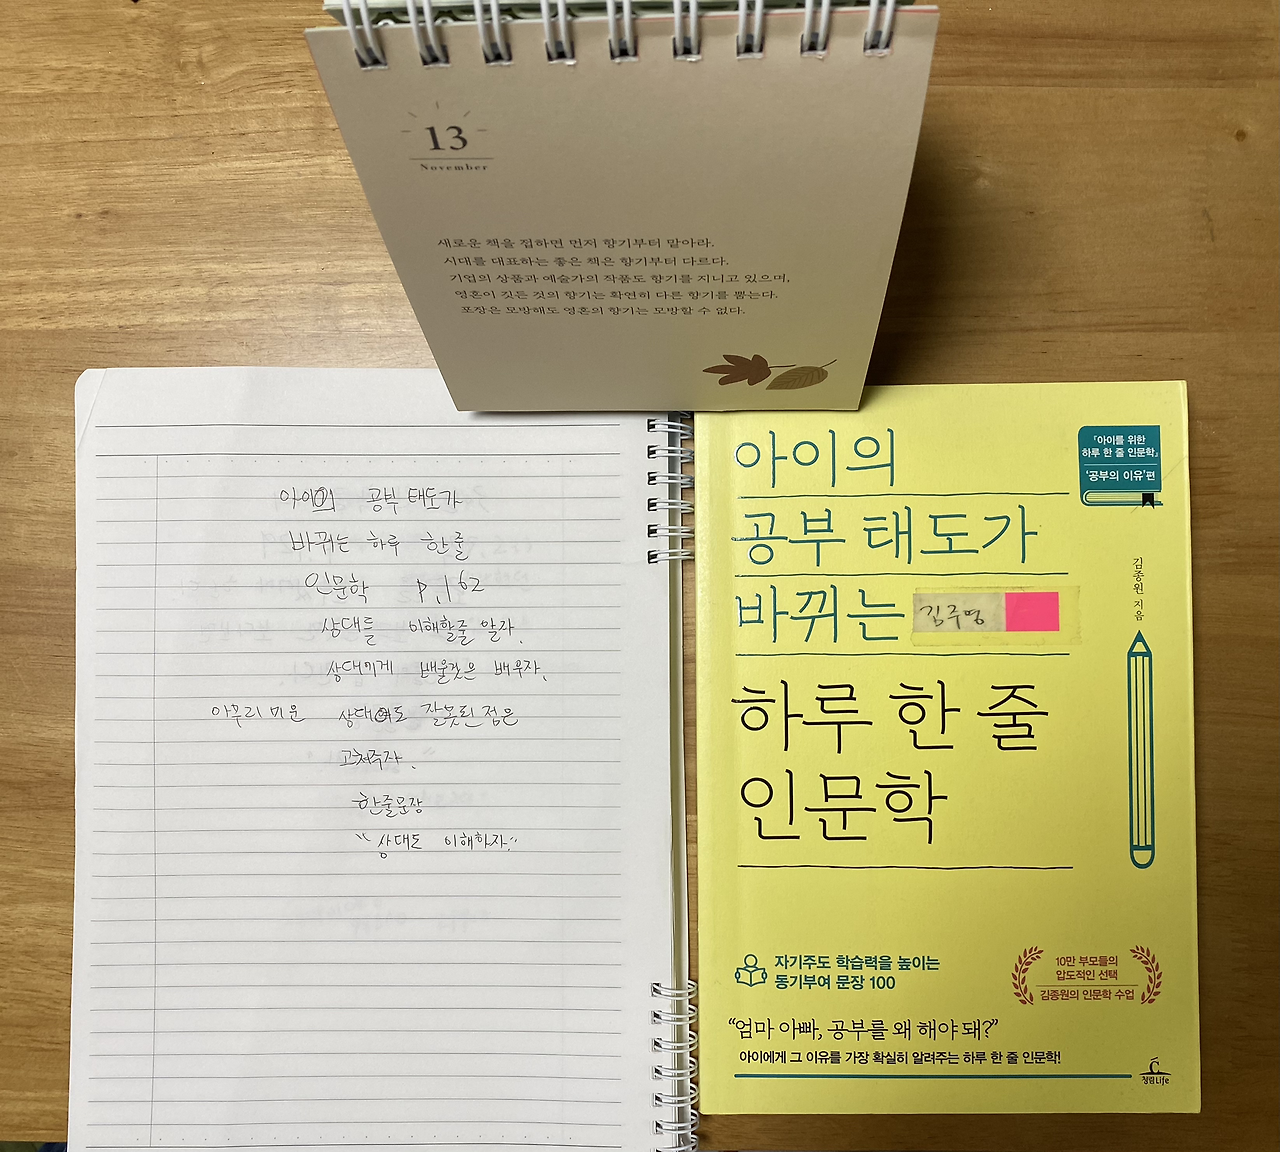 13
November
새로운 책을 접하면 먼저 향기부터 맡아라.
시대를 대표하는 좋은 책은 향기부터 다르다.
기업의 상품과 예술가의 작품도 향기를 지니고 있으며,
영혼이 깃든 것의 향기는 확연히 다른 향기를 뿜는다.
포장은 모방해도 영혼의 향기는 모방할 수 없다.
아이의 공부 태도가
바뀌는 하루 한줄
인문학 p.162
상대를 이해할줄 알라.
상대에게 배울것은 배우자.
아무리 미운 상대여도 잘못된 점은
고쳐주자.
한줄문장
"상대도 이해하자."
아이의
공부 태도가
바뀌는
김주영
하루 한 줄
인문학
『아이를 위한
하루 한 줄 인문학』
'공부의 이유'편
김종원 지음
자기주도 학습력을 높이는
동기부여 문장 100
10만 부모들의
압도적인 선택
김종원의 인문학 수업
"엄마 아빠, 공부를 왜 해야 돼?"
아이에게 그 이유를 가장 확실히 알려주는 하루 한 줄 인문학!
청림Life